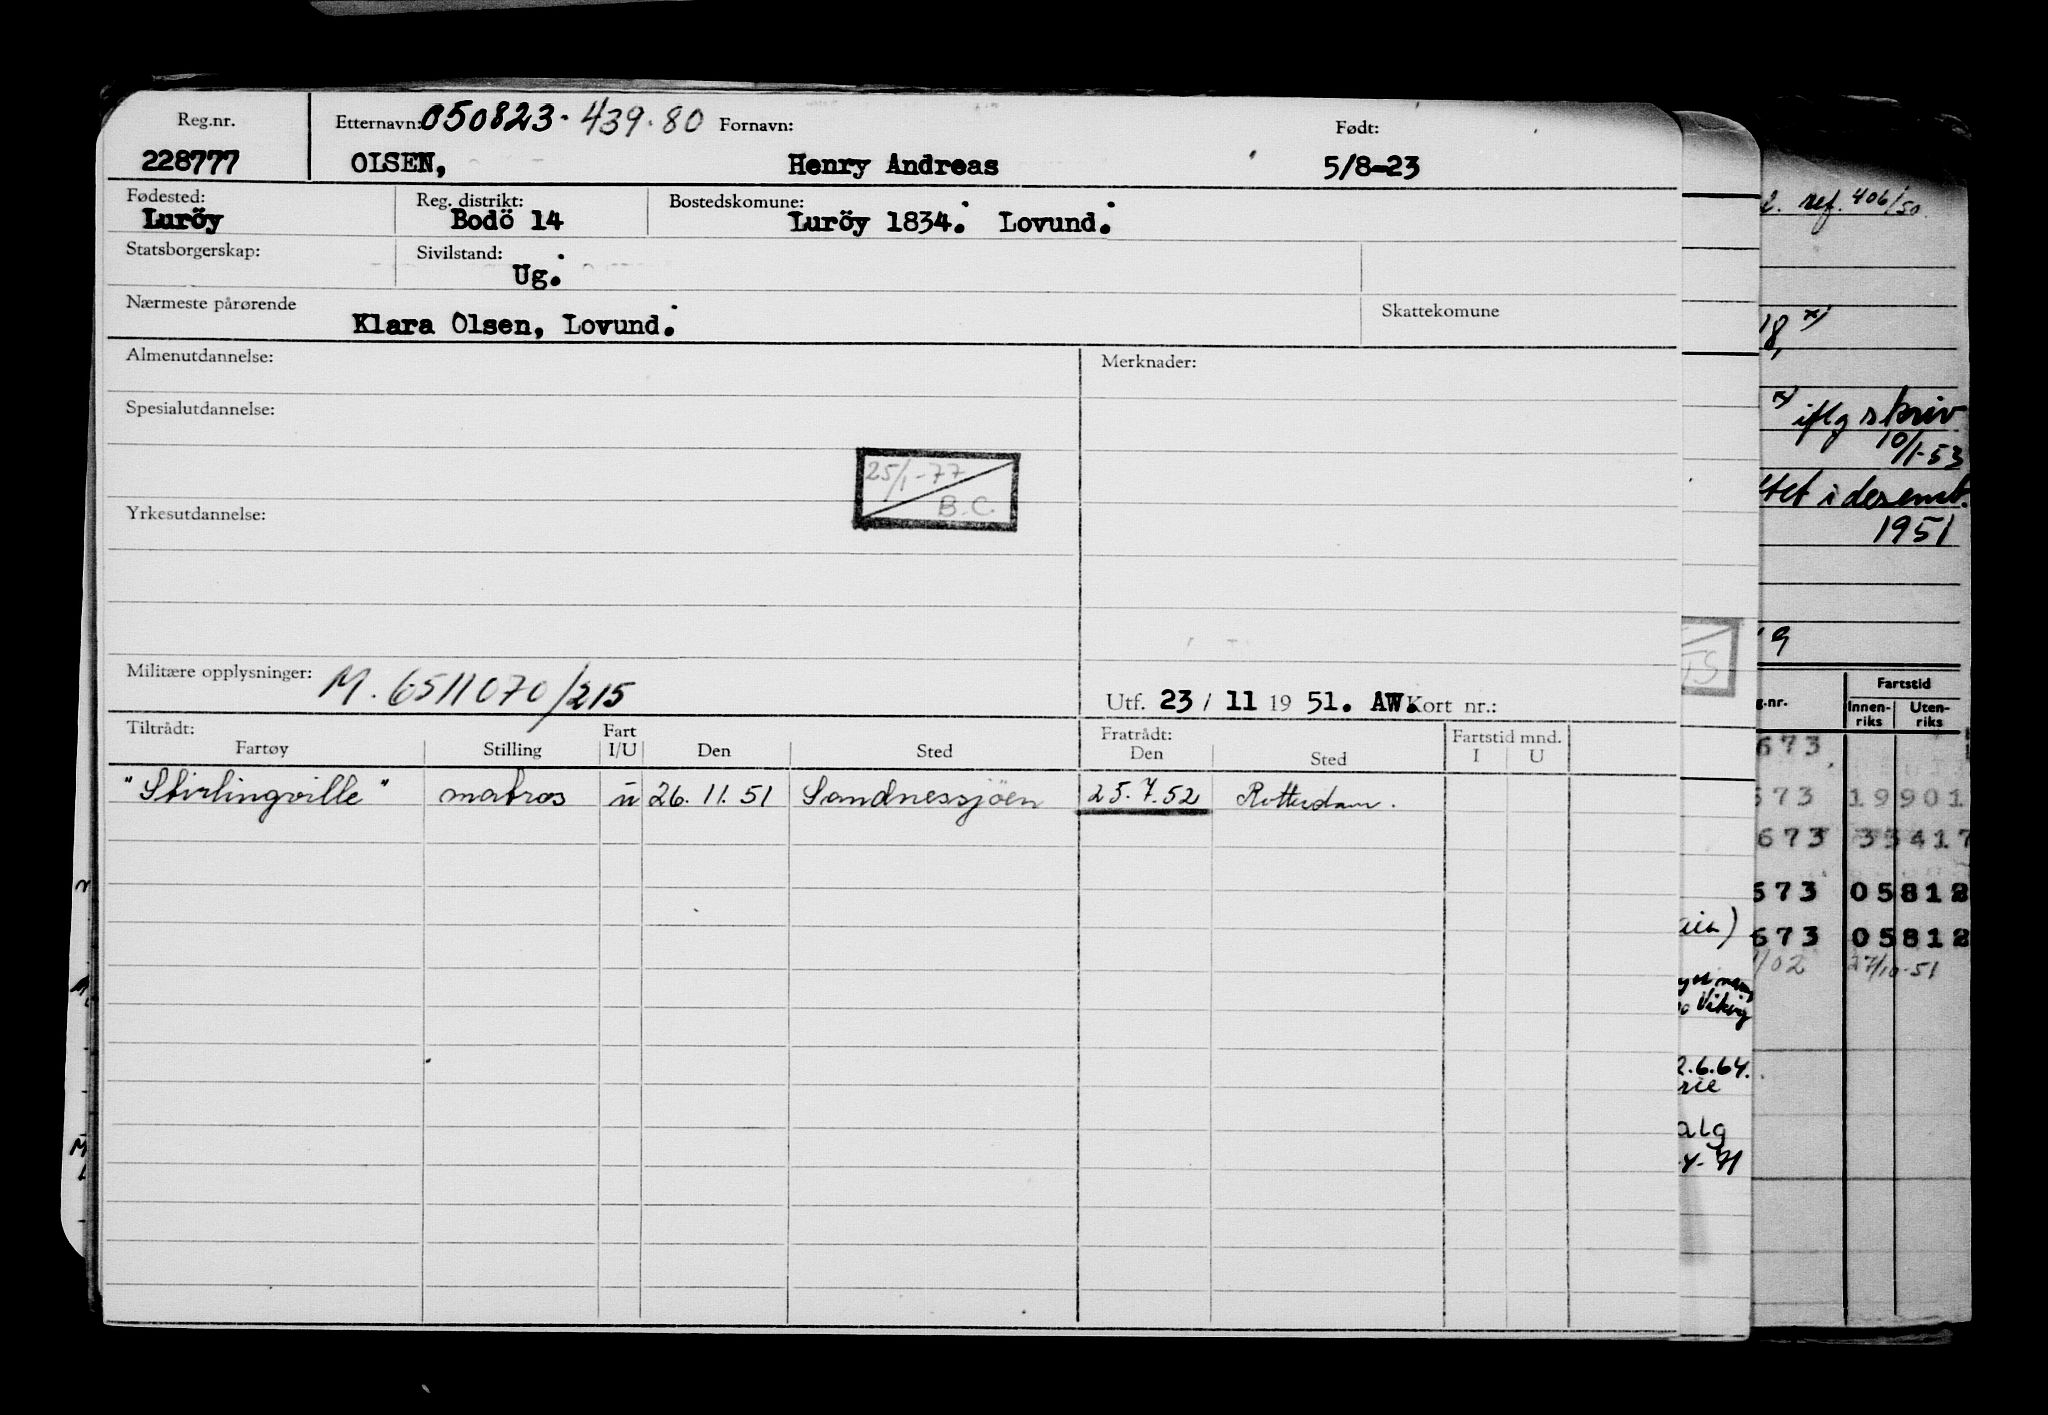 Reg.nr. Etternavn: 050823. 439.80 Fornavn: Født:
228777 OLSEN, Henry Andreas 5/8-23
Fødested: Reg. distrikt: Bostedskomune:
Luröy Bodö 14 Luröy 1834. Lovund.
Statsborgerskap: Sivilstand:
Ug.
Nærmeste pårørende Skattekomune
Klara Olsen, Lovund.
Almenutdannelse: Merknader:
Spesialutdannelse:
25/1-77
B.C.
Yrkesutdannelse:
Militære opplysninger: M. 6511070/215
Utf. 23/11 1951. AW. Kort nr.:
Tiltrådt: Fratrådt:
Fartøy Stilling Fart I/U Den Sted Den Sted Fartstid mnd. I U
"Stirlingville" matros u 26.11.51 Sandnessjöen 25.7.52 Rotterdam.
ref. 406/50.
18, x)
x) iflg skriv
10/1-53
tet i desemb.
1951
9
Fartstid
g.nr. Innen-riks Uten-riks
673
573 19901
673 33417
573 05812
573 05812
/02 27/10-51
Viking
2.6.64.
alg